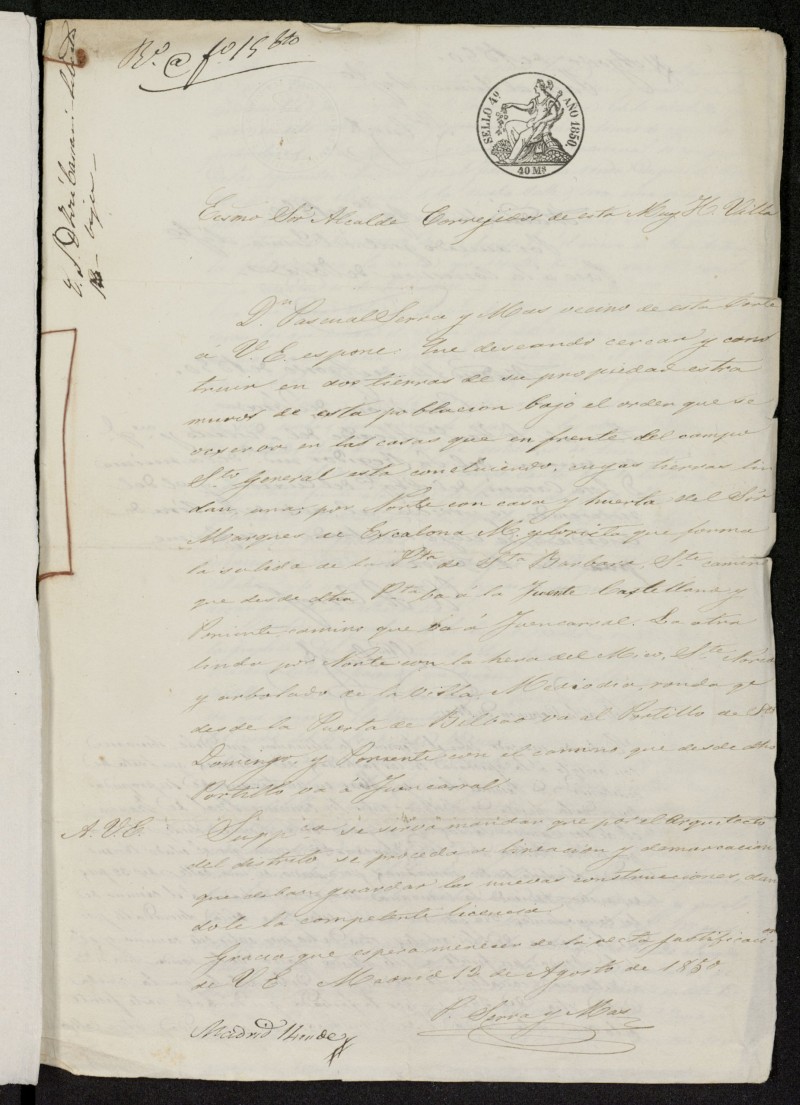 Rº @ fº 15 bto
SELLO 4º AÑO 1850.
40 Ms
Ecsmo Sor Alcalde Corregidor de esta Muy H. Villa
Dn Pascual Serra y Mas vecino de esta Corte
á V. E. espone: Que deseando cercar y cons
truir en dos tierras de su propiedad estra
muros de esta poblacion bajo el orden que se
observa en las casas que en frente del campo
Sto General esta construiendo, cuyas tierras lin
dan, una, por Norte con casa y huerta del Sor
Marques de Escalona M. glorieta que forma
la salida de la Pta de Sta Barbara, Ste camino
que desde dha Pta ba á la Fuente Castellana y
Poniente camino que va á Fuencarral. La otra
linda por Norte con la hera del Mico, Ste
y arbolado de la Villa, Mediodia, ronda qe
desde la Puerta de Bilbao va al Portillo de Sto
Domingo, y Poniente con el camino que desde dho
Portillo va á Fuencarral.
A. V. E. Suppca se sirva mandar que por el Arquitecto
del distrito se proceda a lineacion y demarcacion
que deban guardar las nuevas construcciones, dan
dole la competente licencia
Gracia que espera merecer de la recta justificacion
de V. E. Madrid 12 de Agosto de 1850
P. Serra y Mas
Madrid 14 de